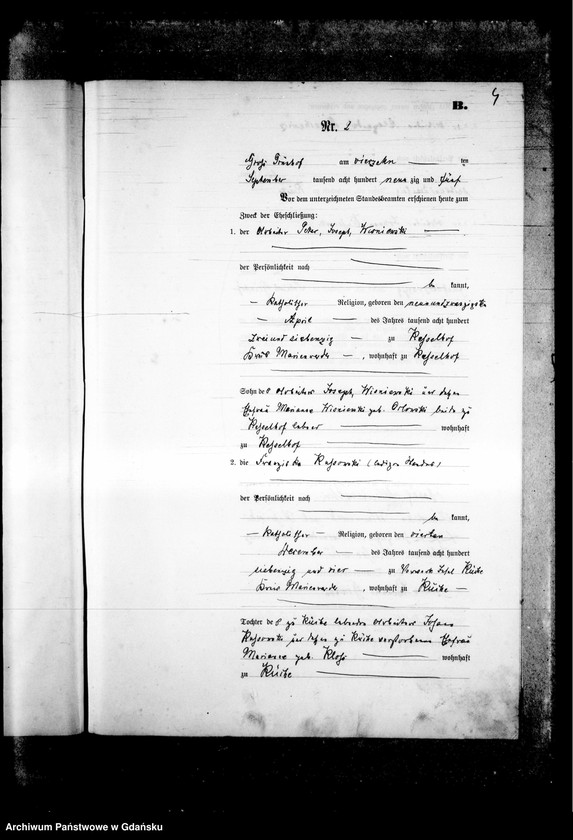 B.
Nr. 2
am vierzehn ten
September tausend acht hundert neunzig und fünf
Vor dem unterzeichneten Standesbeamten erschienen heute zum
Zweck der Eheschließung:
1. der Arbeiter Peter, Joseph, Wisniewski
der Persönlichkeit nach
be kannt,
katholischer Religion, geboren den neunundzwanzigsten
April des Jahres tausend acht hundert
zweiundsiebenzig zu Kesselhof
Kreis Marienwerder, wohnhaft zu Kesselhof
Sohn des Arbeiters Joseph, Wisniewski und dessen
Ehefrau Marianne Wisniewski geb. Orlowski beide zu
Kesselhof lebend wohnhaft
zu Kesselhof
2. die Franziska Kassowski (ledigen Standes)
der Persönlichkeit nach
be kannt,
katholischer Religion, geboren den vierten
Dezember des Jahres tausend acht hundert
siebenzig und vier zu
Kreis Marienwerder, wohnhaft zu
Tochter des zu lebenden Arbeiters Johann
Kassowski und dessen zu verstorbenen Ehefrau
Marianne geb. wohnhaft
zu
Archiwum Państwowe w Gdańsku